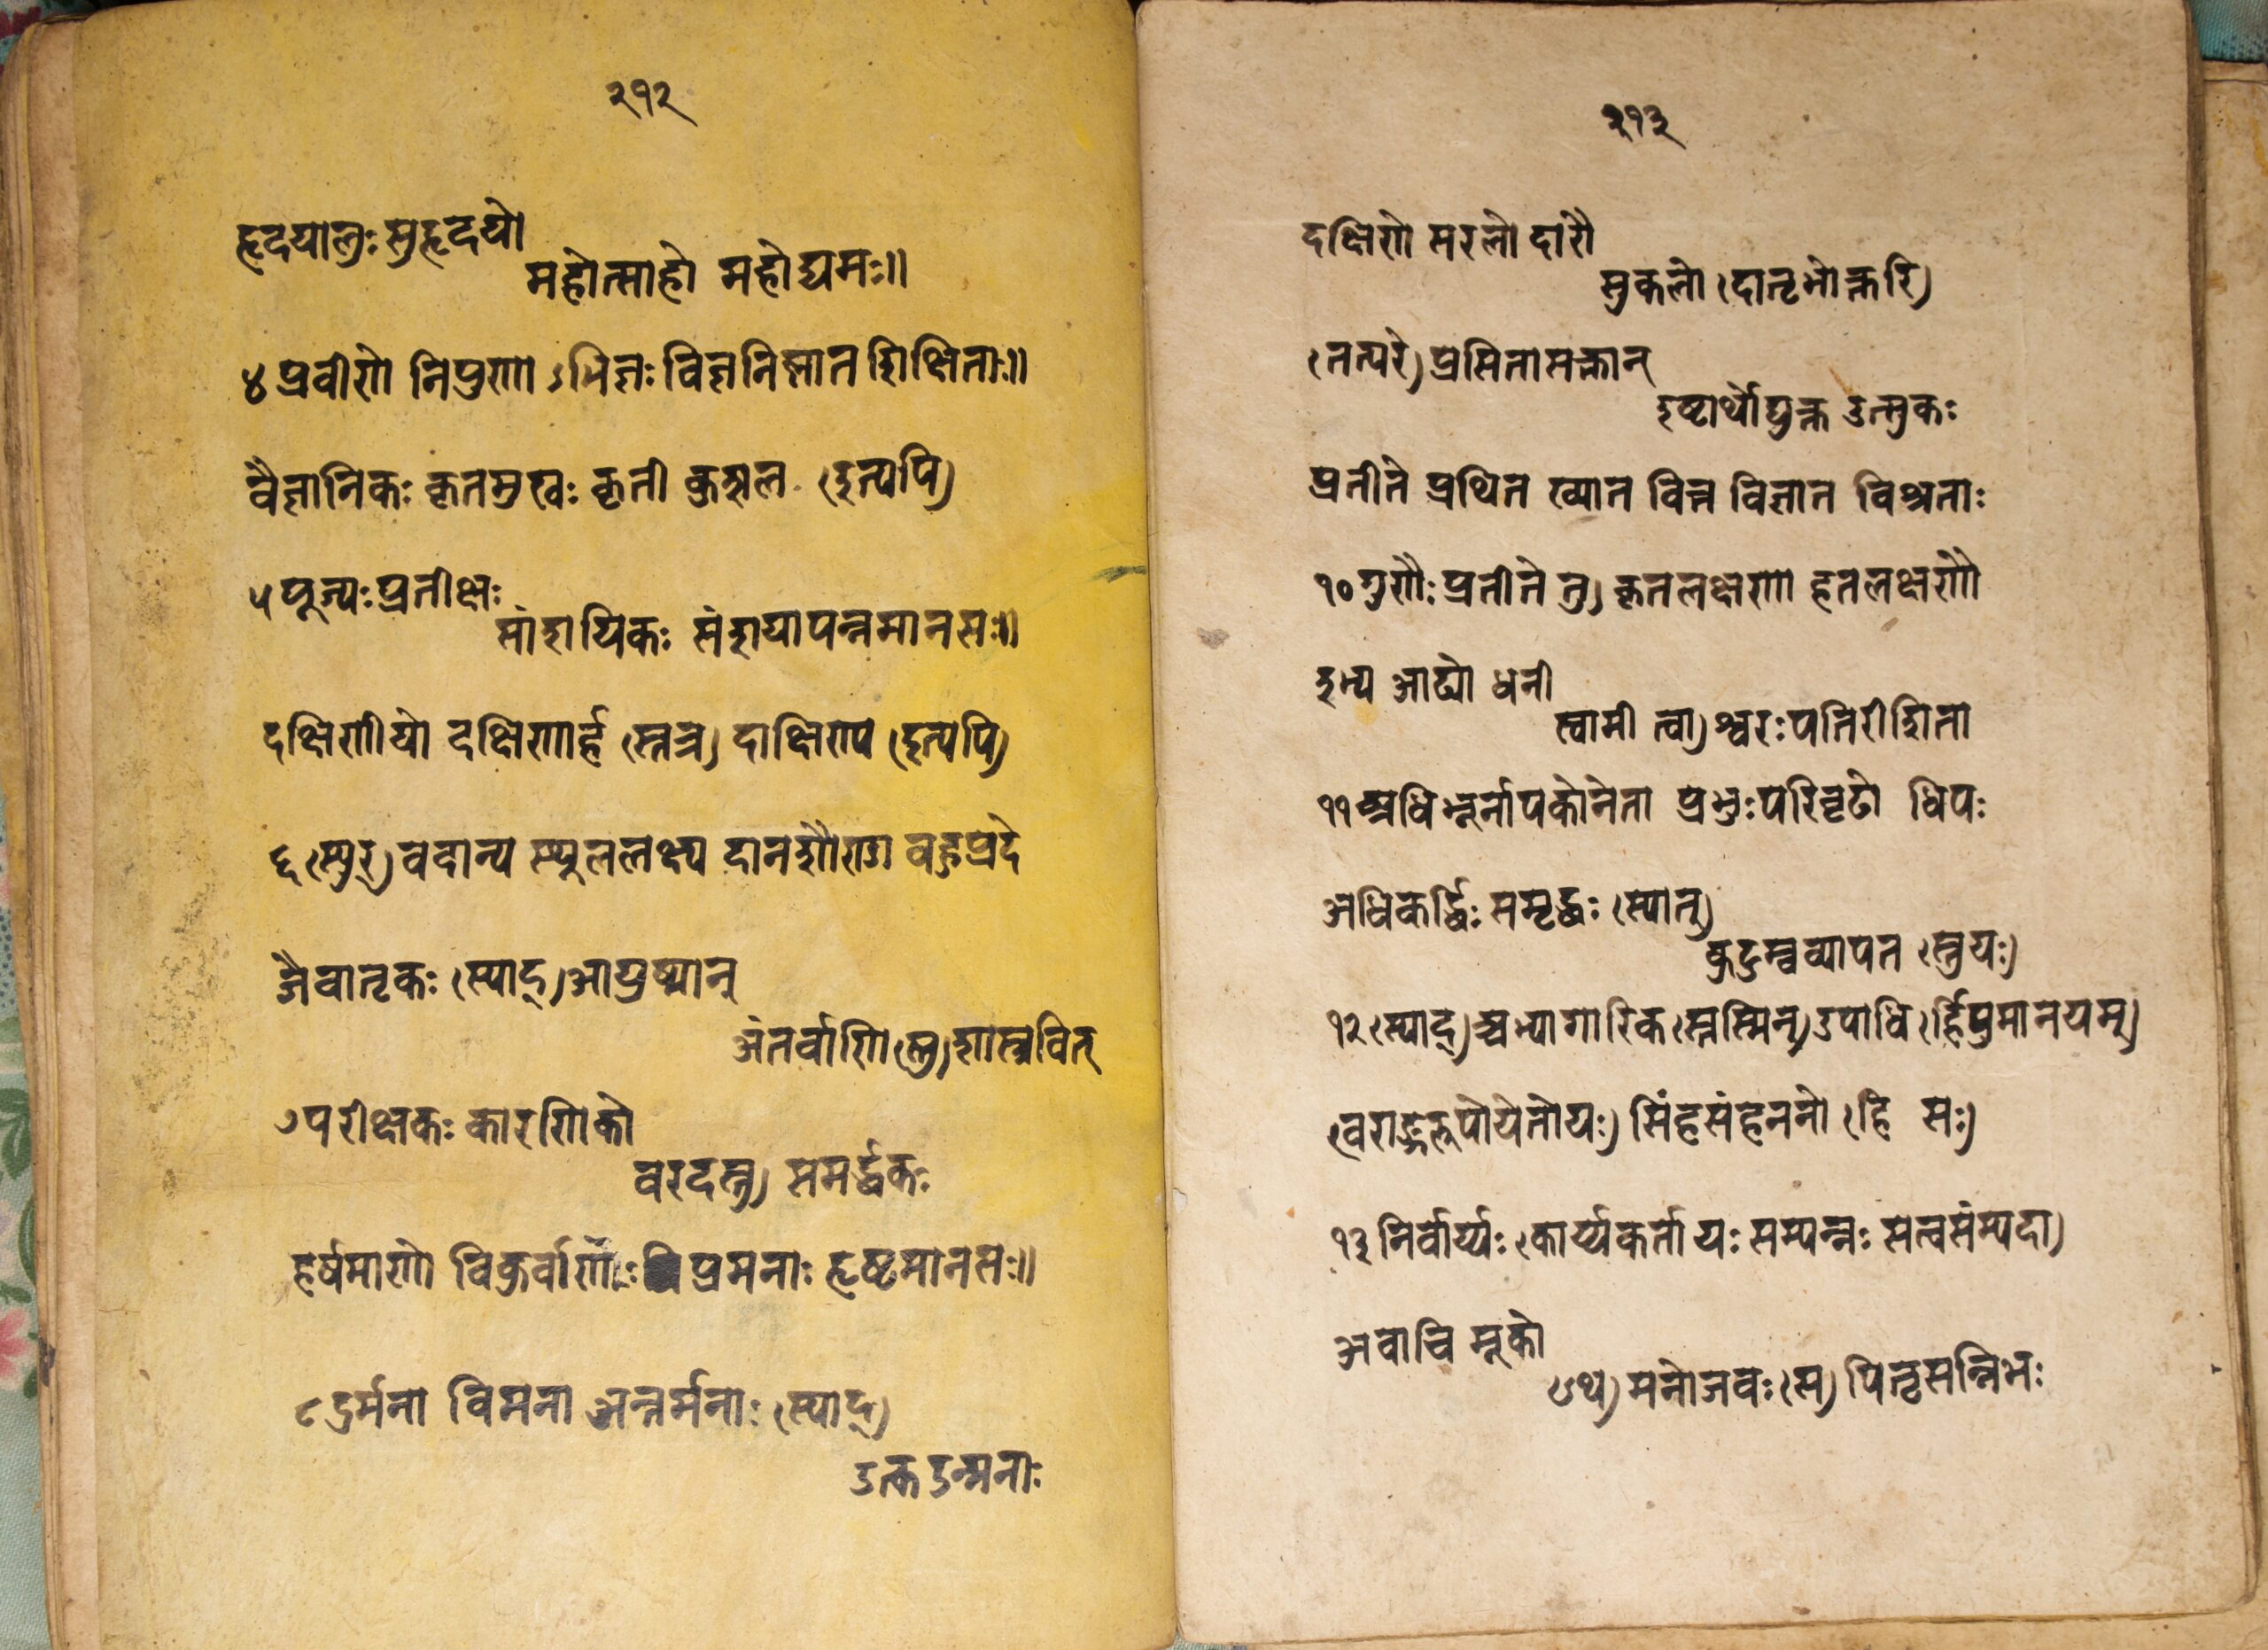 २१२
हृदयालुः सुहृदयो
महोत्साहो महोद्यमः॥
४ प्रवीणो निपुणा ऽभिज्ञः विज्ञनिष्णात शिक्षिताः॥
वैज्ञानिकः कृतमुखः कृती कुशल (इत्यपि)
५ पूज्यः प्रतीक्षः
सांशयिकः संशयापन्नमानसः॥
दक्षिणीयो दक्षिणार्ह (स्तत्र) दाक्षिण्य (इत्यपि)
६ (स्युर्) वदान्य स्थूललक्ष्य दानशौण्डा बहुप्रदे
जैवातृकः (स्याद्) आयुष्मान्
अंतर्वाणि (स्तु) शास्त्रवित्
७ परीक्षकः कारणिको
वरदस्तु) समर्द्धकः
हर्षमाणो विकुर्वाणः प्रमनाः हृष्टमानसः॥
८ दुर्मना विमना अन्तर्मनाः (स्याद्)
उत्क उन्मनाः
२१३
दक्षिणो सरलो दारौ
सुकलो (दातृभोक्तरि)
(तत्परे) प्रसितासक्तान्
इष्टार्थोद्युक्त उत्सुकः
प्रतीते प्रथित ख्यात वित्त विज्ञात विश्रुताः
१० गुणैः प्रतीते तु) कृतलक्षणा हतलक्षणौ
इभ्य आढ्यो धनी
स्वामी त्वा) श्वरः पतिरीशिता
११ अधिभूर्नापकोनेता प्रभुः परिवृढो धिपः
अधिकर्द्धिः समृद्धः (स्यात्)
कुटुम्बव्यापृत (स्तुयः)
१२ (स्याद्) अभ्यागारिक (स्तस्मिन्) उपाधि (र्हिपुमानयम्)
(वराङ्गरूपोयेतोयः) सिंहसंहननो (हि सः)
१३ निर्वार्य्यः (कार्य्यकर्ता यः सम्पन्नः सत्वसंम्पदा)
अवाचि मूको
(ऽथ) मनोजवः (स) पितृसन्निभः